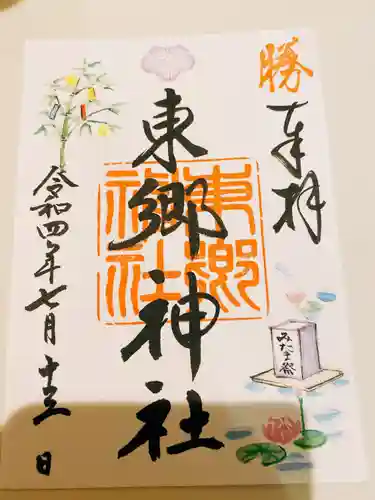 勝
奉拝
東郷神社
東郷
神社
令和四年七月十三日
みたま祭